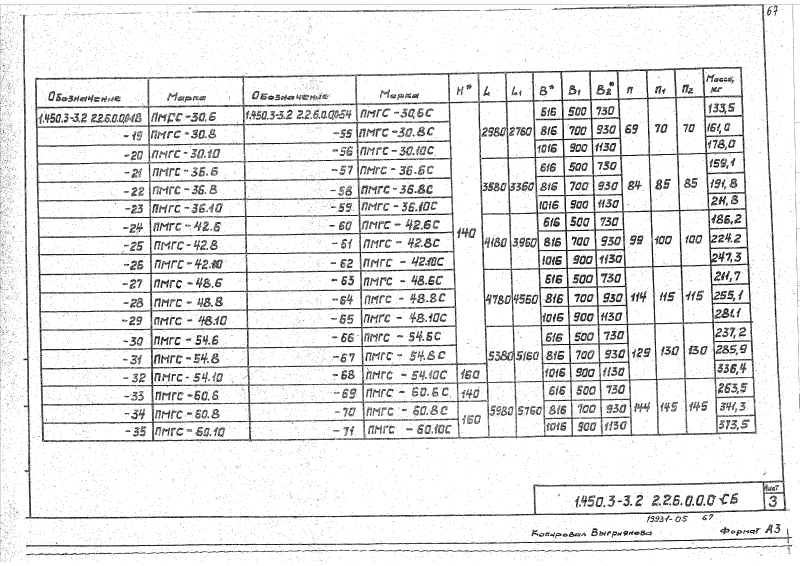 67
Обозначение Марка Обозначение Марка H* L L₁ B* B₁ B₂* n n₁ n₂ Масса, кг
1.450.3-3.2 2.2.6.0.0.0-18 ПМГС-30.6 1.450.3-3.2 2.2.6.0.0.0-54 ПМГС-30.6С 140 2980 2760 616 500 730 69 70 70 133,5
-19 ПМГС-30.8 -55 ПМГС-30.8С 816 700 930 161,0
-20 ПМГС-30.10 -56 ПМГС-30.10С 1016 900 1130 178,0
-21 ПМГС-36.6 -57 ПМГС-36.6С 3580 3360 616 500 730 84 85 85 159,1
-22 ПМГС-36.8 -58 ПМГС-36.8С 816 700 930 191,8
-23 ПМГС-36.10 -59 ПМГС-36.10С 1016 900 1130 211,8
-24 ПМГС-42.6 -60 ПМГС-42.6С 4180 3960 616 500 730 99 100 100 186,2
-25 ПМГС-42.8 -61 ПМГС-42.8С 816 700 930 224.2
-26 ПМГС-42.10 -62 ПМГС-42.10С 1016 900 1130 247,3
-27 ПМГС-48.6 -63 ПМГС-48.6С 4780 4560 616 500 730 114 115 115 211,7
-28 ПМГС-48.8 -64 ПМГС-48.8С 816 700 930 255,1
-29 ПМГС-48.10 -65 ПМГС-48.10С 1016 900 1130 281.1
-30 ПМГС-54.6 -66 ПМГС-54.6С 5380 5160 616 500 730 129 130 130 237,2
-31 ПМГС-54.8 -67 ПМГС-54.8С 816 700 930 285,9
-32 ПМГС-54.10 -68 ПМГС-54.10С 160 1016 900 1130 336,4
-33 ПМГС-60.6 -69 ПМГС-60.6С 140 5980 5760 616 500 730 144 145 145 263,5
-34 ПМГС-60.8 -70 ПМГС-60.8С 160 816 700 930 341,3
-35 ПМГС-60.10 -71 ПМГС-60.10С 1016 900 1130 373,5
1.450.3-3.2 2.2.6.0.0.0-СБ
Лист
3
19931-05 67
Копировал Выгриянова Формат А3